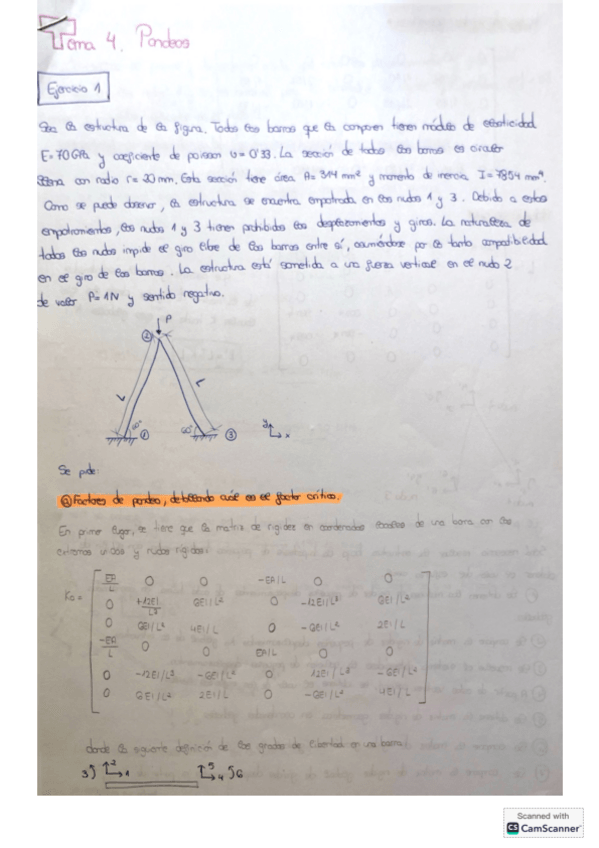 Tema 4. Pandeos
Ejercicio 1
Sea la estructura de la figura. Todas las barras que la componen tienen módulo de elasticidad
E=70GPa y coeficiente de poisson υ=0'33. La sección de todas las barras es circular
llena con radio r=        mm. Esta sección tiene área A=314 mm² y momento de inercia I=7854 mm⁴.
Como se puede observar, la estructura se encuentra empotrada en los nudos 1 y 3. Debido a estos
empotramientos, los nudos 1 y 3 tienen prohibidos los desplazamientos y giros. La naturaleza de
todos los nudos impide el giro libre de las barras entre sí, asumiéndose por lo tanto compatibilidad
en el giro de las barras. La estructura está sometida a una fuerza vertical en el nudo 2
de valor P=1N y sentido negativo.
P
2
L
L
60°
1
60°
3
y
x
Se pide:
a) Factores de pandeo, detallando cuál es el factor crítico.
En primer lugar, se tiene que la matriz de rigidez en coordenadas locales de una barra con los
extremos unidos y nudos rígidos:
Ke =
EA/L 0 0 -EA/L 0 0
0 +12EI/L³ 6EI/L² 0 -12EI/L³ 6EI/L²
0 6EI/L² 4EI/L 0 -6EI/L² 2EI/L
-EA/L 0 0 EA/L 0 0
0 -12EI/L³ -6EI/L² 0 12EI/L³ -6EI/L²
0 6EI/L² 2EI/L 0 -6EI/L² 4EI/L
donde la siguiente definición de los grados de libertad en una barra:
3 2 1 5 4 6
Scanned with
CS CamScanner